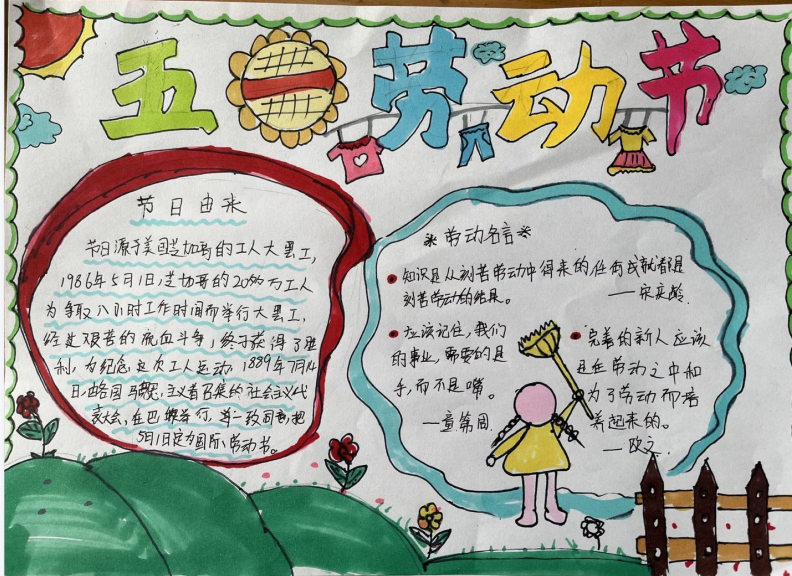 五一劳动节
节日由来
节日源于美国芝加哥的工人大罢工,
1986年5月1日,芝加哥的20万工人
为争取八小时工作时间而举行大罢工,
经过艰苦的流血斗争,终于获得了胜
利,为纪念这次工人运动,1889年7月14
日,由各国马克思主义者召集的社会主义代
表大会,在巴黎举行,并一致同意,把
5月1日定为国际劳动节。
*劳动名言*
知识是从刻苦劳动中得来的任何成就都是
刻苦劳动的结果。
——宋庆龄
应该记住,我们
的事业,需要的是
手,而不是嘴。
—童第周
完美的新人应该
是在劳动之中和
为了劳动而培
养起来的。
—欧文